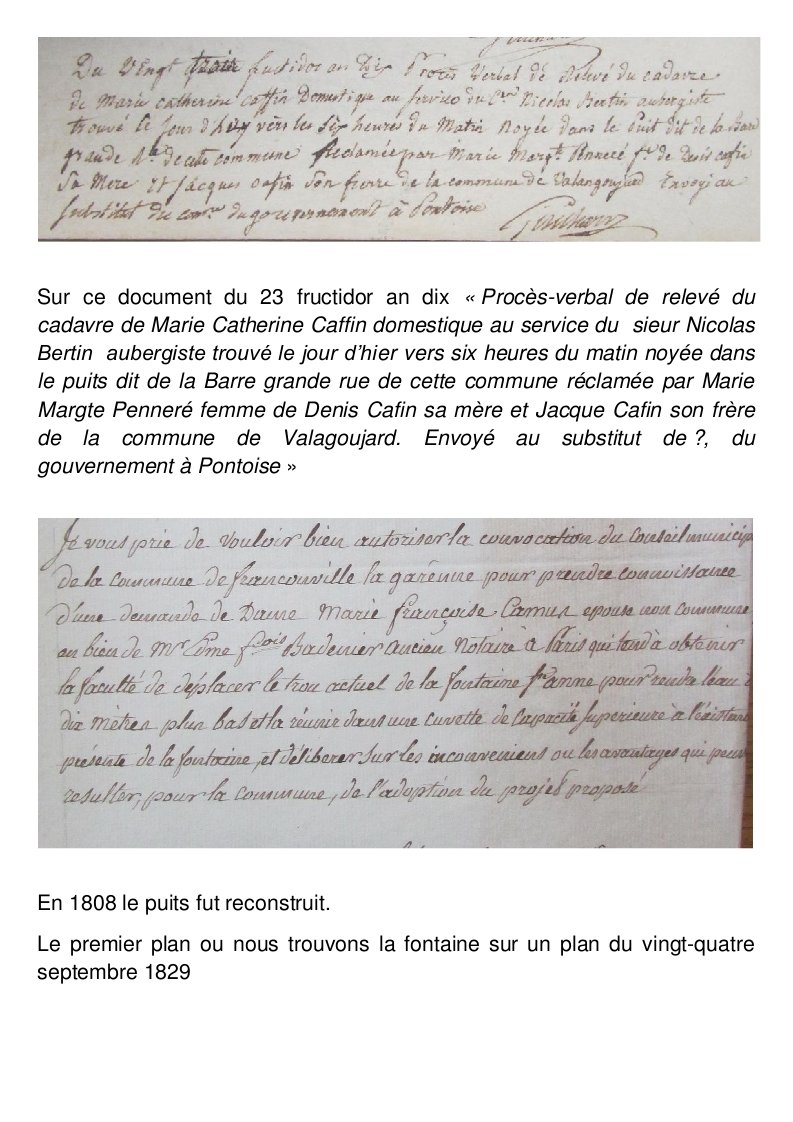 Du Vingt trois fructidor an dix Procès Verbal de Relevé du cadavre
de Marie catherine caffin Domestique au service du Nicolas Bertin aubergiste
trouvé le jour d'hier vers les six heures du Matin Noyée dans le Puit dit de la Barre
grande de cette commune Reclamée par Marie Marg.te Penneré f.e de Denis cafin
Sa Mere Et Jacques cafin son frere de la commune de Valangoujard Envoyé au
substitut du du gouvernement à Pontoise
Sur ce document du 23 fructidor an dix « Procès-verbal de relevé du
cadavre de Marie Catherine Caffin domestique au service du sieur Nicolas
Bertin aubergiste trouvé le jour d’hier vers six heures du matin noyée dans
le puits dit de la Barre grande rue de cette commune réclamée par Marie
Margte Penneré femme de Denis Cafin sa mère et Jacque Cafin son frère
de la commune de Valagoujard. Envoyé au substitut de ?, du
gouvernement à Pontoise »
Je vous prie de vouloir bien autoriser la convocation du Conseil municip
de la commune de franconville la garenne pour prendre connoissance
d'une demande de Dame Marie françoise Camus epouse non commune
en bien de Mr Edme f.cois Badenier ancien Notaire à Paris qui tend à obtenir
la faculté de déplacer le trou actuel de la fontaine Ste anne pour rendre l'eau à
dix mètres plus bas et la réunir dans une cuvette de capacité superieure à l'existance
présente de la fontaine, et délibérer sur les inconveniens ou les avantages qui peuv
resulter, pour la commune, de l'adoption du projet proposé
En 1808 le puits fut reconstruit.
Le premier plan ou nous trouvons la fontaine sur un plan du vingt-quatre
septembre 1829